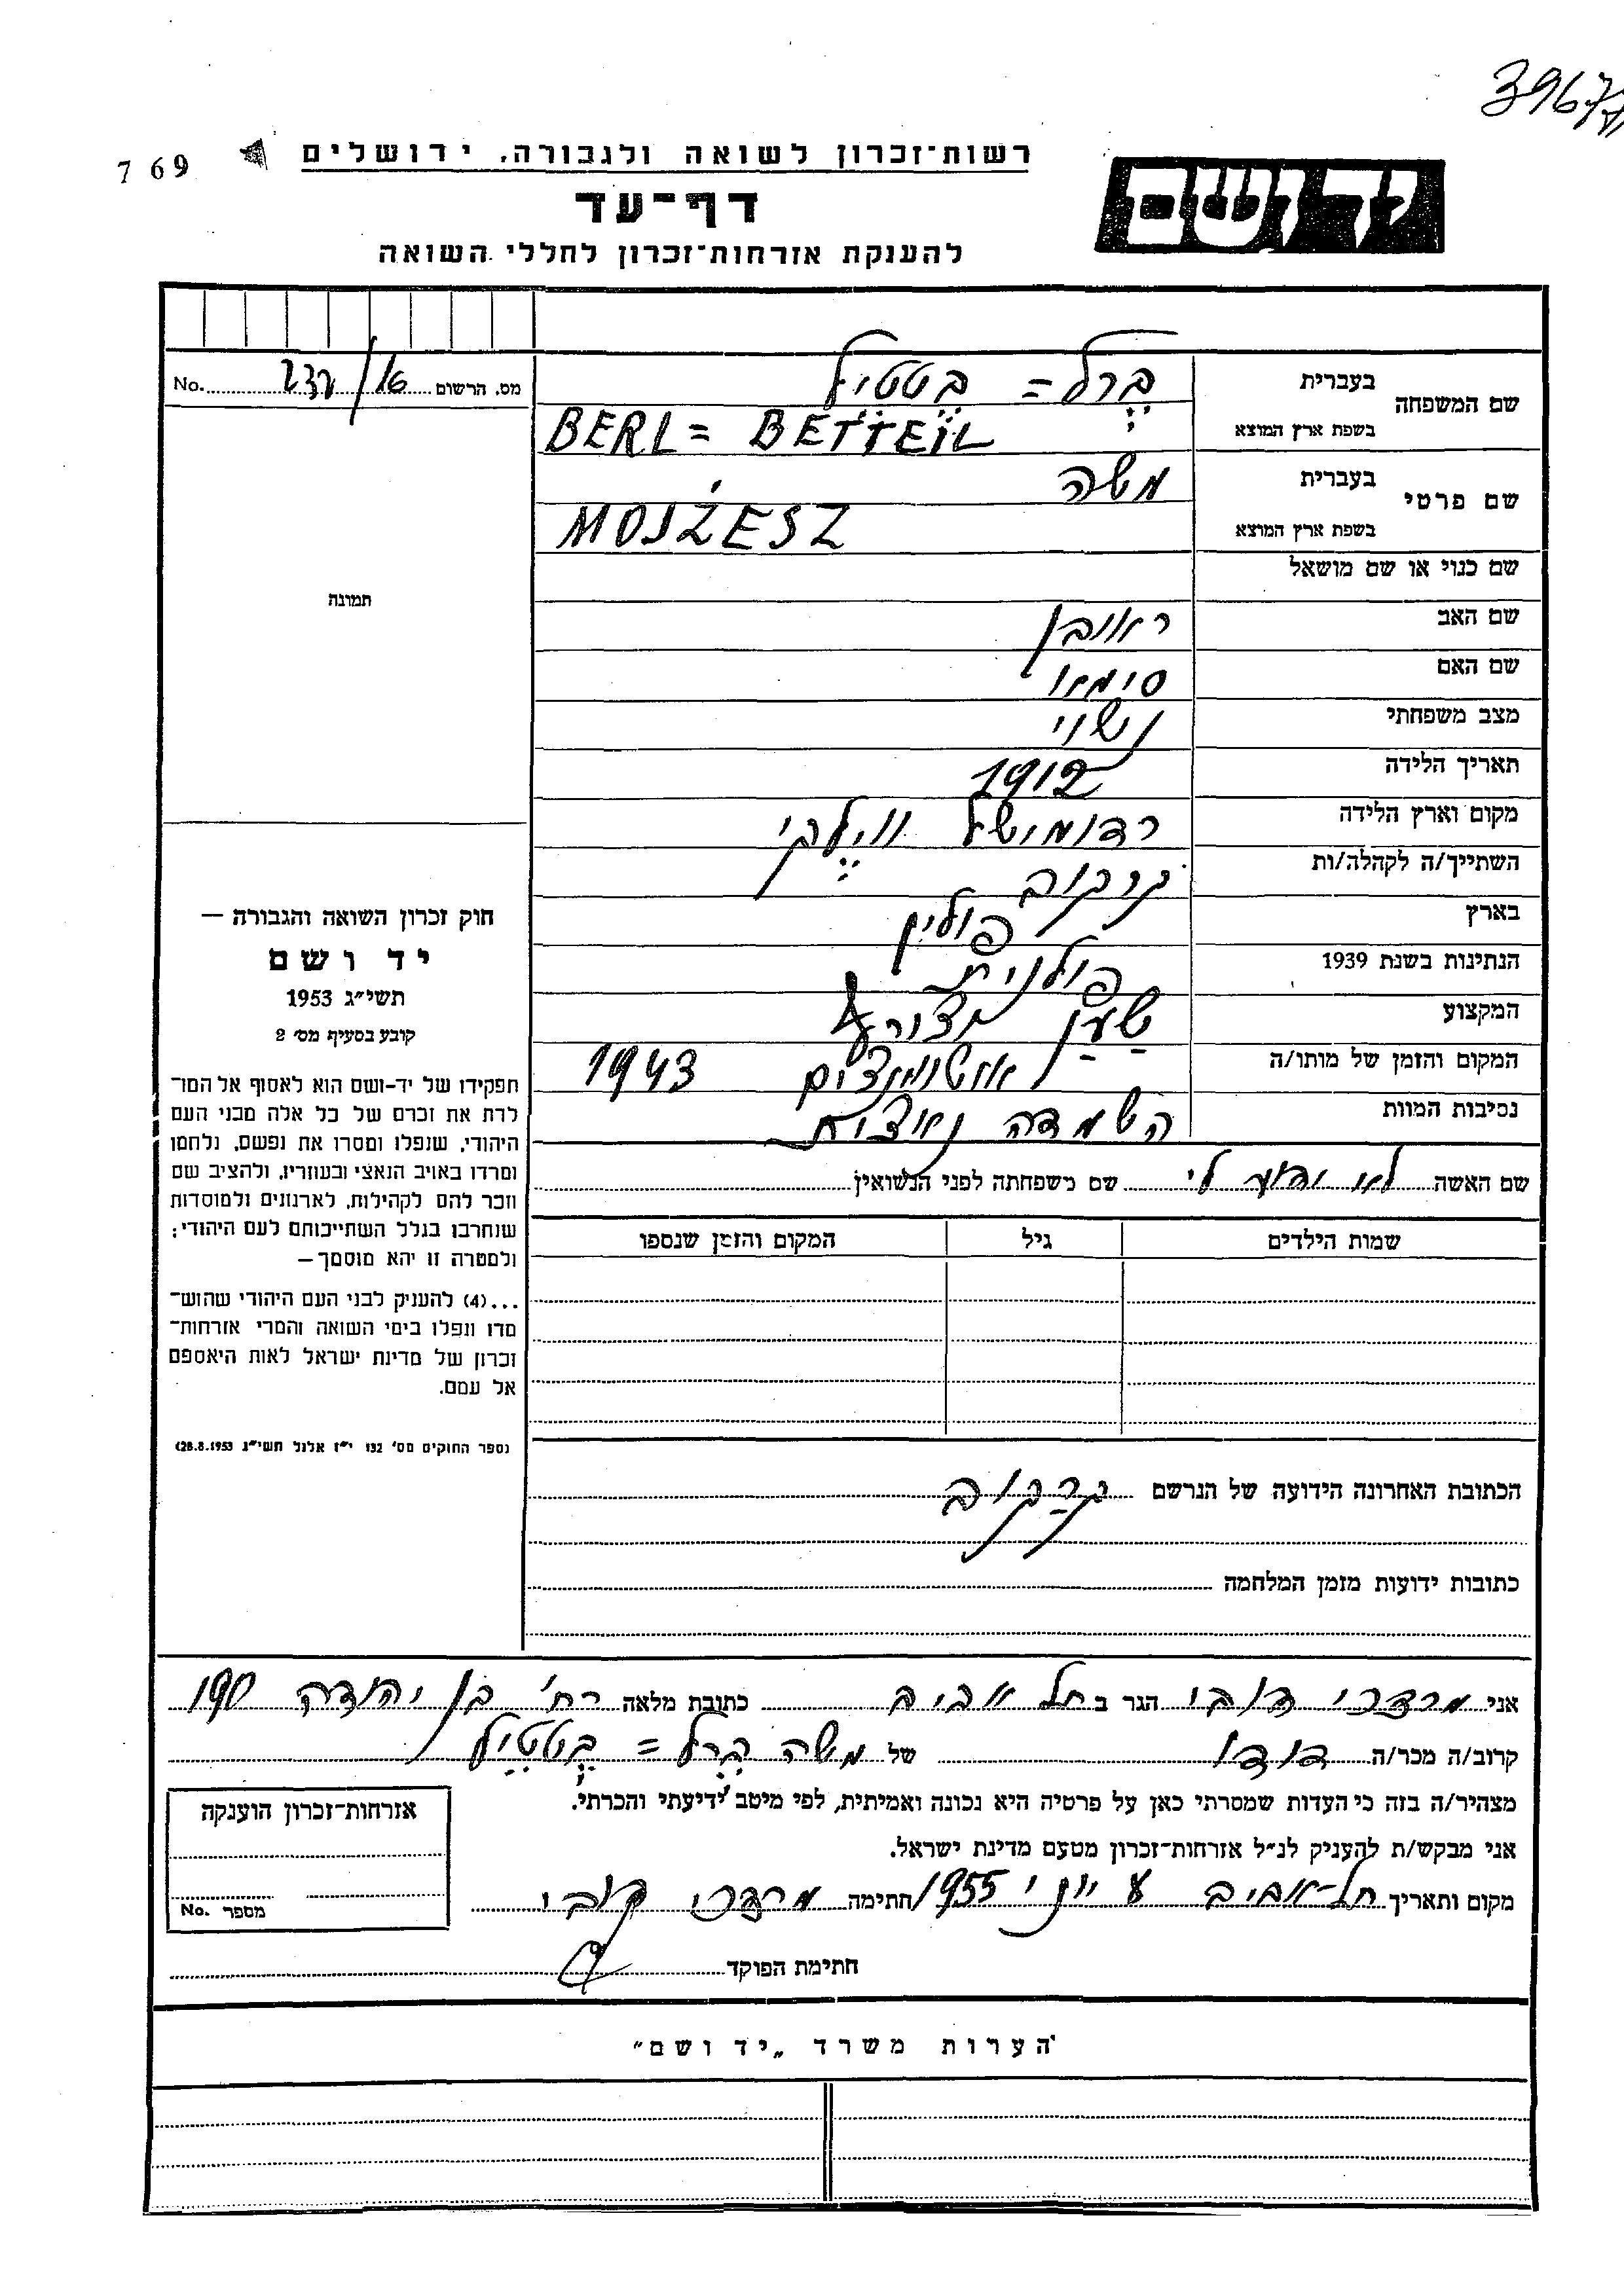 3967
769
רשות־זכרון לשואה ולגבורה, ירושלים
יד ושם
דף־עד
להענקת אזרחות־זכרון לחללי השואה
מס. הרשום 237/16 No.
שם המשפחה
בעברית ברל = בטטיל
בשפת ארץ המוצא BERL = BETTEIL
שם פרטי
בעברית משה
בשפת ארץ המוצא MOJŻESZ
שם כנוי או שם מושאל
שם האב ראובן
שם האם
מצב משפחתי נשוי
תאריך הלידה 1912
מקום וארץ הלידה רדומישל ווילקי
השתייך/ה לקהלה/ות קרקוב
בארץ פולין
הנתינות בשנת 1939 פולנית
המקצוע שען
המקום והזמן של מותו/ה 1943
נסיבות המוות השמדה נאצית
שם האשה לא ידוע לי שם משפחתה לפני הנשואין
שמות הילדים גיל המקום והזמן שנספו
הכתובת האחרונה הידועה של הנרשם קרקוב
כתובות ידועות מזמן המלחמה
תמונה
חוק זכרון השואה והגבורה —
יד ושם
תשי״ג 1953
קובע בסעיף מס׳ 2
תפקידו של יד-ושם הוא לאסוף אל המו־
לדת את זכרם של כל אלה מבני העם
היהודי, שנפלו ומסרו את נפשם, נלחמו
ומרדו באויב הנאצי ובעוזריו, ולהציב שם
וזכר להם לקהילות, לארגונים ולמוסדות
שנחרבו בגלל השתייכותם לעם היהודי;
ולמטרה זו יהא מוסמך —
...(4) להעניק לבני העם היהודי שהוש־
מדו ונפלו בימי השואה והמרי אזרחות־
זכרון של מדינת ישראל לאות היאספם
אל עמם.
(ספר החוקים מס׳ 132 י״ז אלול תשי״ג 28.8.1953)
אני מרדכי הגר ב תל אביב כתובת מלאה רח׳ בן יהודה 190
קרוב/ה מכר/ה דודו של משה ברל = בטטיל
מצהיר/ה בזה כי העדות שמסרתי כאן על פרטיה היא נכונה ואמיתית, לפי מיטב ידיעתי והכרתי.
אני מבקש/ת להעניק לנ״ל אזרחות־זכרון מטעם מדינת ישראל.
מקום ותאריך תל-אביב יוני 1955 חתימה מרדכי
חתימת הפוקד
אזרחות־זכרון הוענקה
מספר No.
הערות משרד „יד ושם״